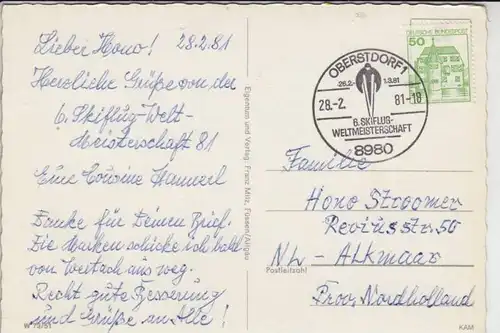 Lieber Hono! 28.2.81
Herzliche Grüße von der
6. Skiflug-Welt-
Meisterschaft 81
Eure Cousine Hannerl
Danke für Deinen Brief.
Die Marken schicke ich bald
von Weitach aus weg.
Recht gute Besserung
und Grüße an Alle!
W 73/51
Eigentum und Verlag: Franz Milz, Füssen/Allgäu
DEUTSCHE BUNDESPOST
50
OBERSTDORF 1
26.2.- 1.3.81
28.-2. 81-18
6. SKIFLUG-
WELTMEISTERSCHAFT
8980
Familie
Hono Stroomer
Revius str. 50
NL - ALKMAAR
Postleitzahl
Prov. Nordholland
KAM